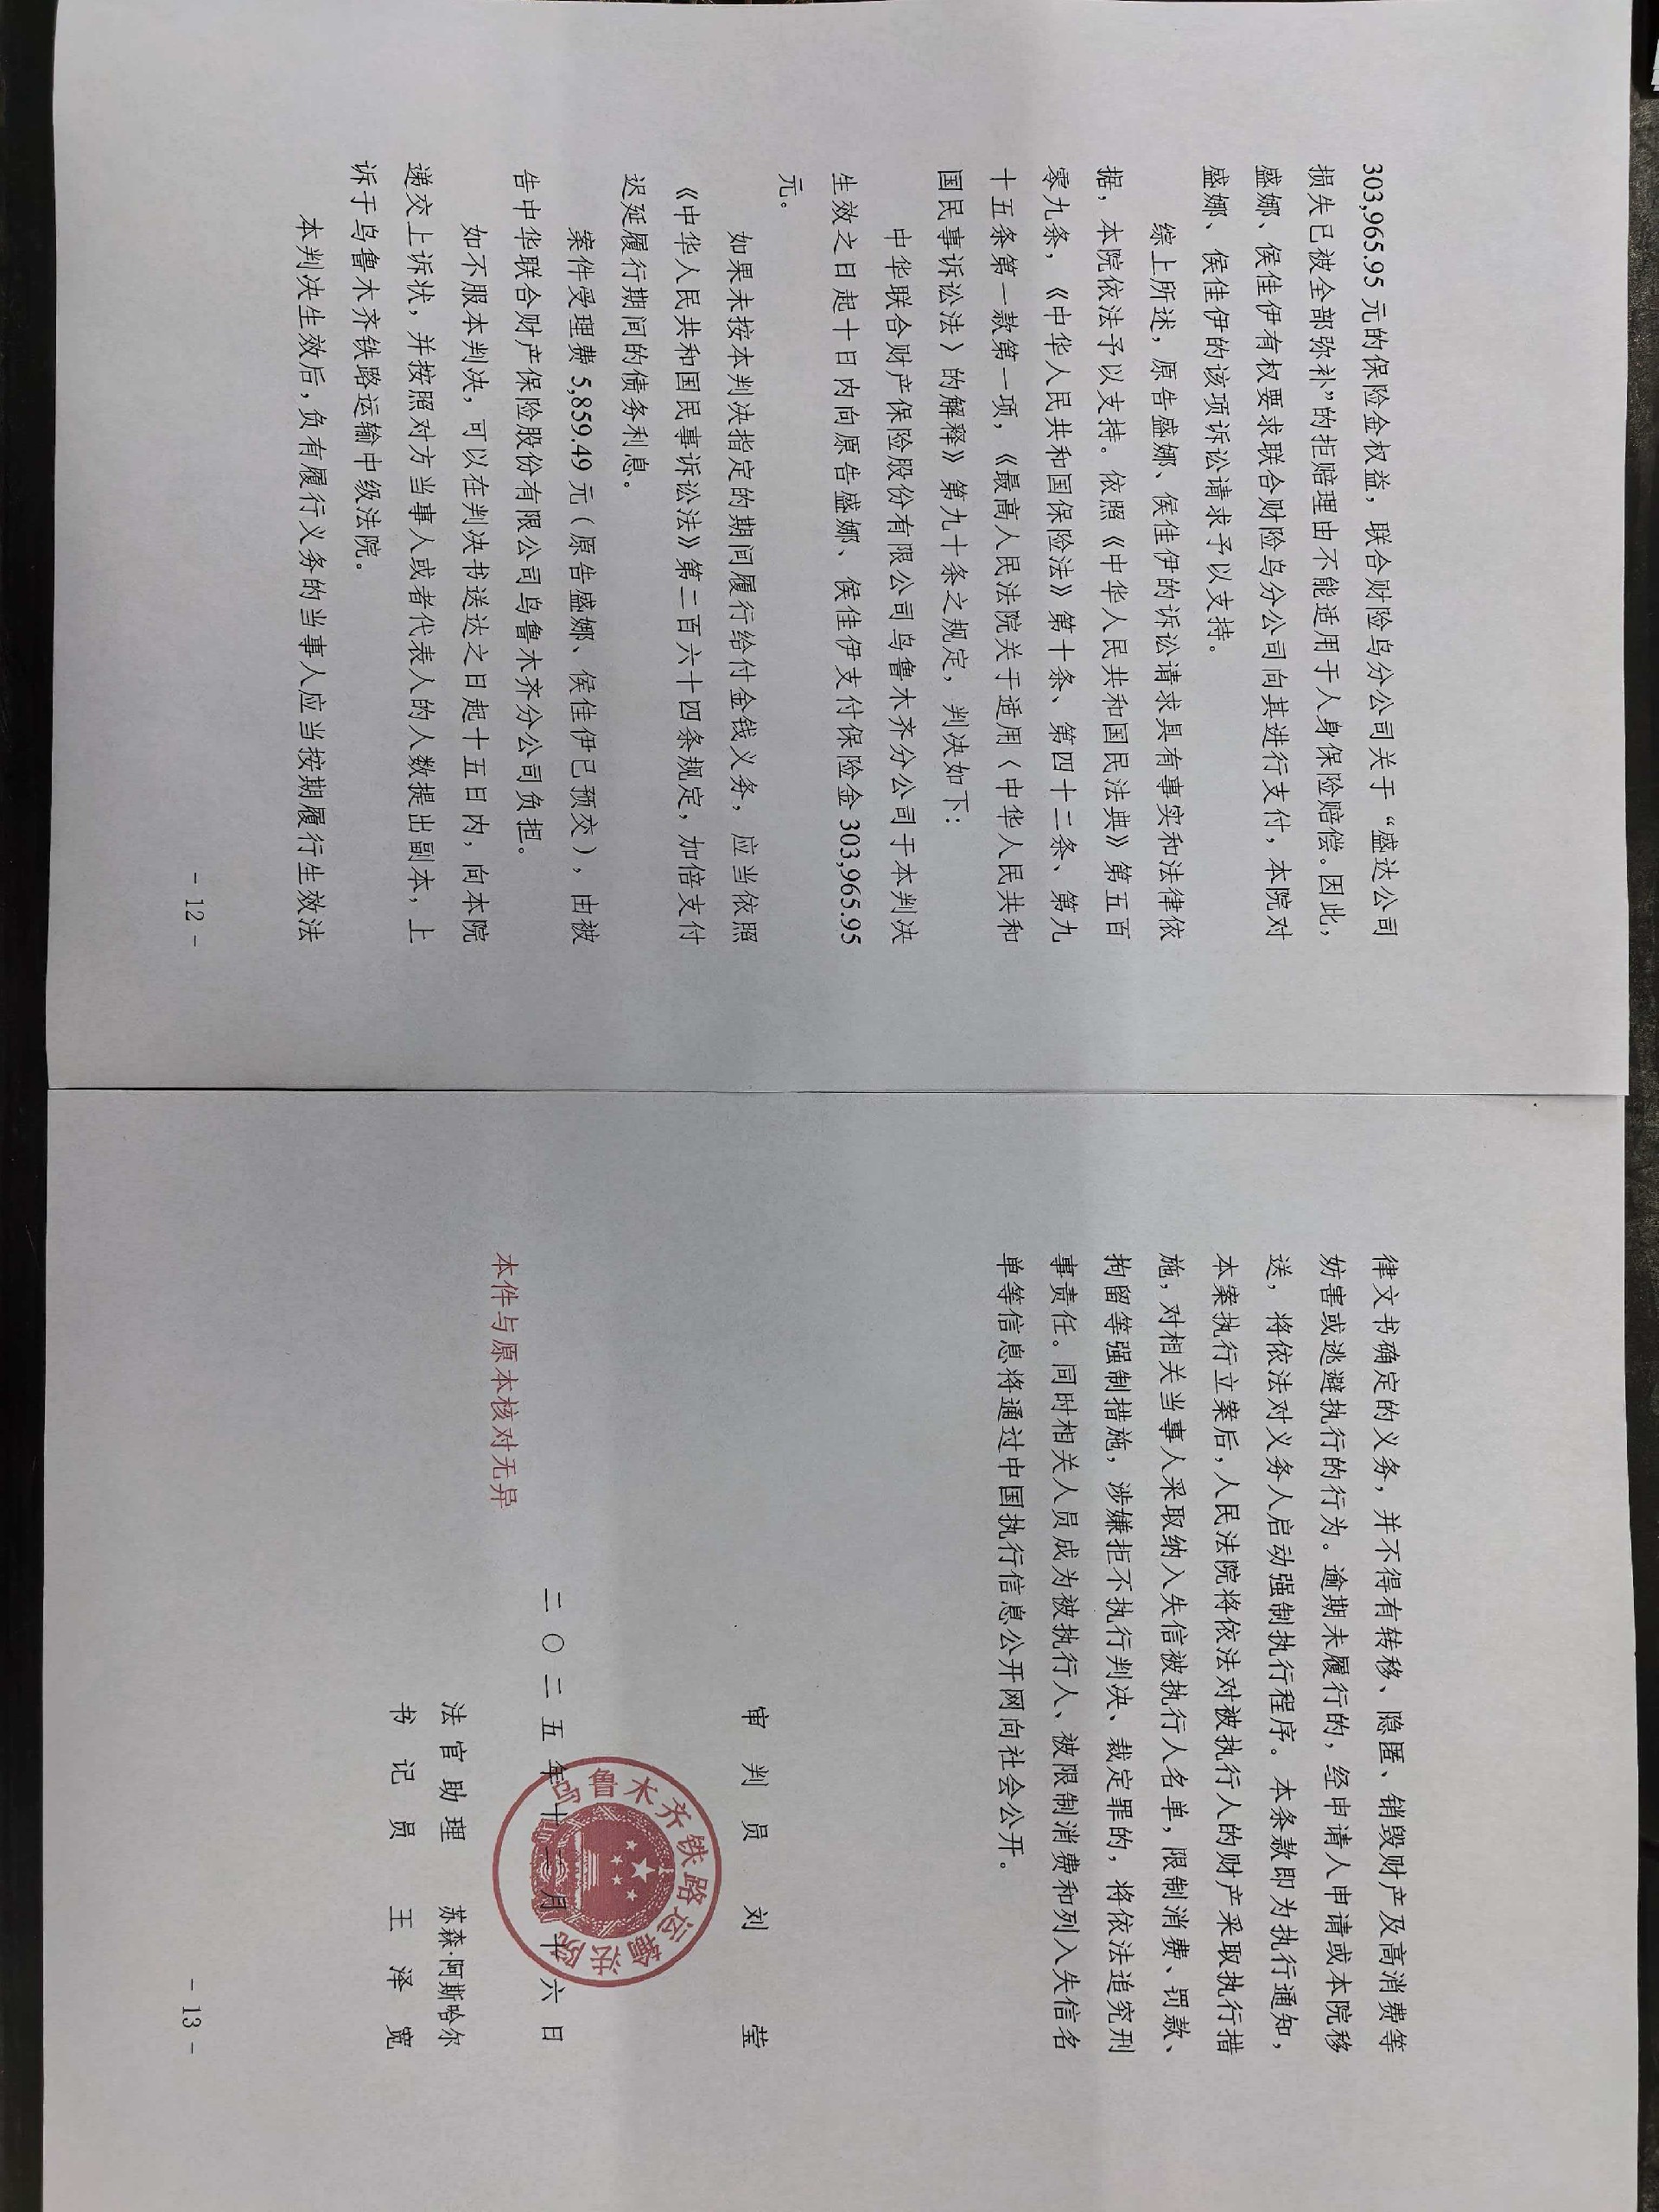 303,965.95 元的保险金权益，联合财险乌分公司关于“盛达公司
损失已被全部弥补”的拒赔理由不能适用于人身保险赔偿。因此，
盛娜、侯佳伊有权要求联合财险乌分公司向其进行支付，本院对
盛娜、侯佳伊的该项诉讼请求予以支持。
综上所述，原告盛娜、侯佳伊的诉讼请求具有事实和法律依
据，本院依法予以支持。依照《中华人民共和国民法典》第五百
零九条，《中华人民共和国保险法》第十条、第四十二条、第九
十五条第一款第一项，《最高人民法院关于适用〈中华人民共和
国民事诉讼法〉的解释》第九十条之规定，判决如下：
中华联合财产保险股份有限公司乌鲁木齐分公司于本判决
生效之日起十日内向原告盛娜、侯佳伊支付保险金 303,965.95
元。
如果未按本判决指定的期间履行给付金钱义务，应当依照
《中华人民共和国民事诉讼法》第二百六十四条规定，加倍支付
迟延履行期间的债务利息。
案件受理费 5,859.49 元（原告盛娜、侯佳伊已预交），由被
告中华联合财产保险股份有限公司乌鲁木齐分公司负担。
如不服本判决，可以在判决书送达之日起十五日内，向本院
递交上诉状，并按照对方当事人或者代表人的人数提出副本，上
诉于乌鲁木齐铁路运输中级法院。
本判决生效后，负有履行义务的当事人应当按期履行生效法
- 12 -
律文书确定的义务，并不得有转移、隐匿、销毁财产及高消费等
妨害或逃避执行的行为。逾期未履行的，经申请人申请或本院移
送，将依法对义务人启动强制执行程序。本条款即为执行通知，
本案执行立案后，人民法院将依法对被执行人的财产采取执行措
施，对相关当事人采取纳入失信被执行人名单，限制消费、罚款、
拘留等强制措施，涉嫌拒不执行判决、裁定罪的，将依法追究刑
事责任。同时相关人员成为被执行人、被限制消费和列入失信名
单等信息将通过中国执行信息公开网向社会公开。
审 判 员 刘 莹
二〇二五年十二月十六日
乌鲁木齐铁路运输法院
本件与原本核对无异
法 官 助 理 苏森·阿斯哈尔
书 记 员 王 泽 宽
- 13 -